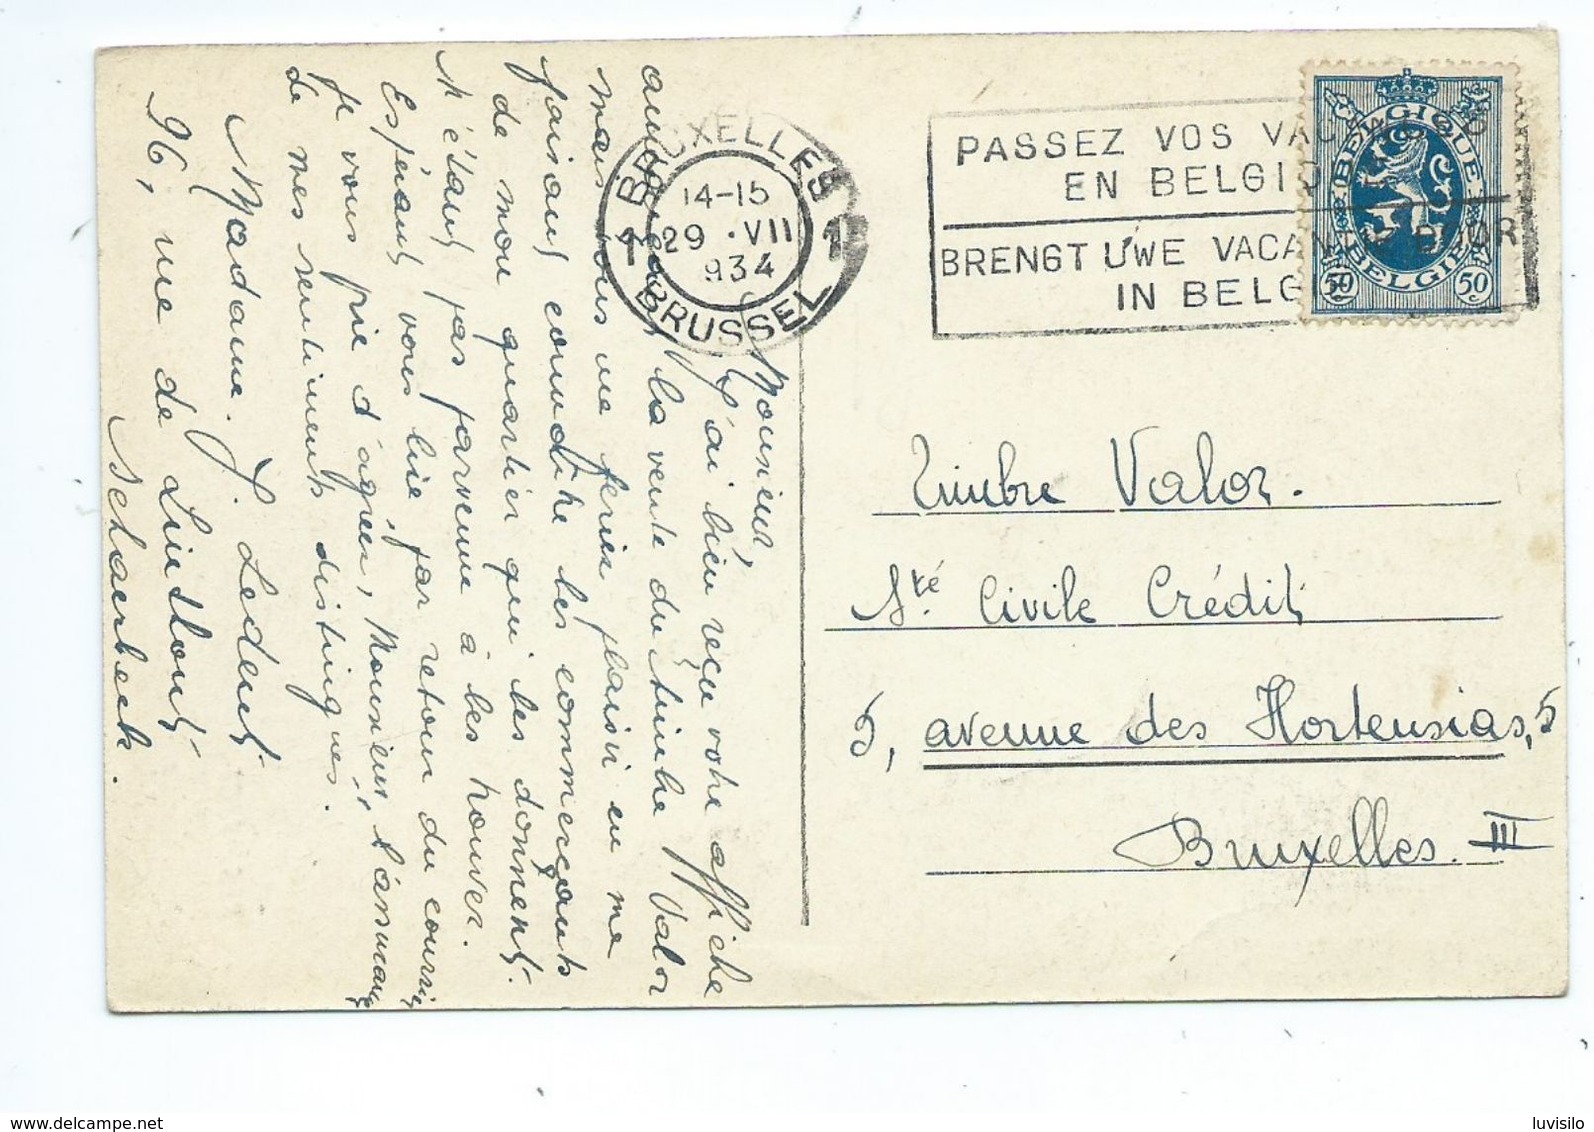 Monsieur,
J'ai bien reçu votre affiche
la vente du timbre Valor
mais vous me feriez plaisir en me
faisant connaître les commerçants
de mon quartier qui les donnent.
N'étant pas parvenue à les trouver.
Espérant vous lire par retour du courrier
je vous prie d'agréer, Monsieur, l'assurance
de mes sentiments distingués.
Madame J. Ledent
96, rue de Linthout
Schaerbeek.
BRUXELLES
14-15
29 . VII
934
1 1
BRUSSEL
PASSEZ VOS VAC
EN BELGI
BRENGT UWE VACAN
IN BELG
BELGIQUE
BELGIË
50 50
Timbre Valor.
Sté Civile Crédit
5, avenue des Hortensias, 5
Bruxelles III
www.delcampe.net
luvisilo